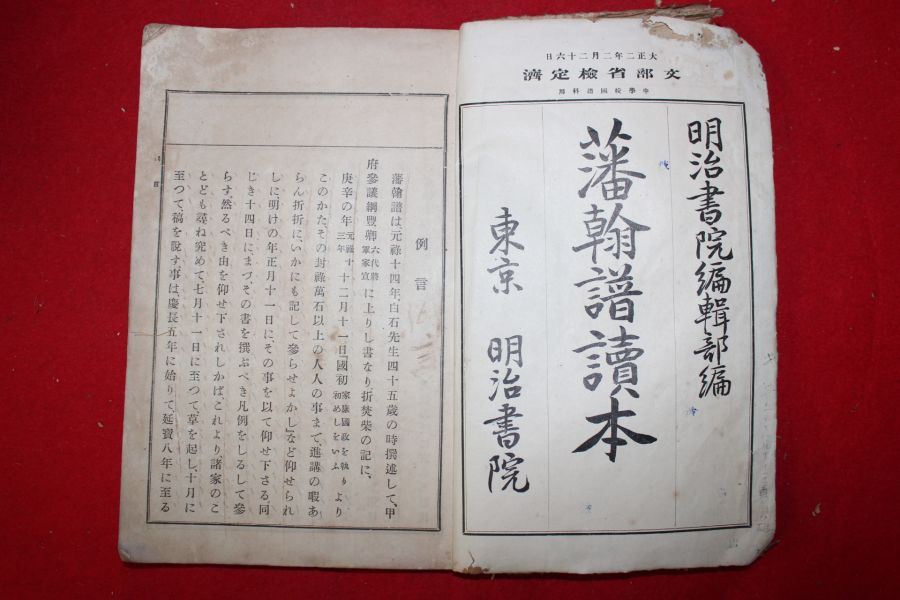 大正二年二月二十六日
文部省檢定濟
中學校國語科用
明治書院編輯部編
藩翰譜讀本
東京 明治書院
例言
藩翰譜は元祿十四年、白石先生四十五歲の時撰述して、甲
府參議綱豐卿六代將軍家宣に上りし書なり、折焚柴の記に、
庚辛の年元祿十三年十二月十一日「國初家康國政を執り初めしをいふより
このかた、その封祿萬石以上の人人の事まで、進講の暇あ
らん折折に、いかにも記して參らせよかし」など仰せられ
しに明けの年正月十一日にその事を以て仰せ下さる、同
じき十四日にまづ、その書を撰ぶべき凡例をしるして參
らす、然るべき由を仰せ下されしかばこれより、諸家のこ
とども尋ね究めて、七月十一日に至つて、草を起し、十月に
至つて稿を脫す、事は、慶長五年に始りて、延寶八年に至る